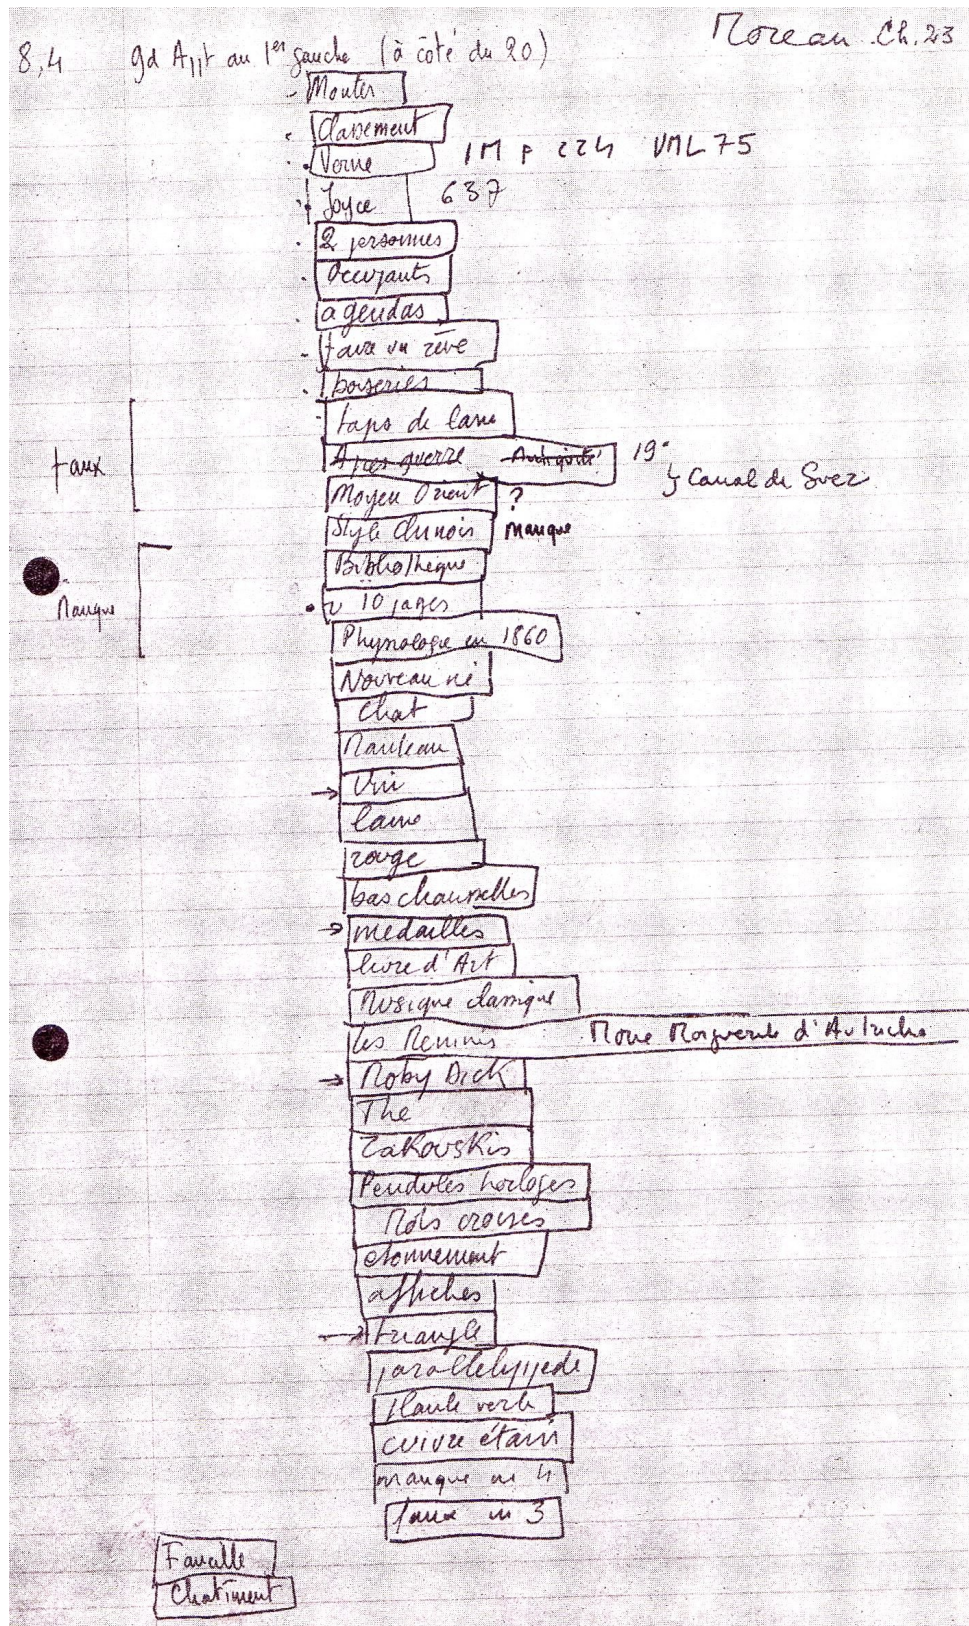 Moreau Ch. 23
8,4 gd App┤ au 1er gauche (à côté du 20)
Monter
Classement
Verne IM p 224 VML 75
Joyce 637
2 personnes
Occupants
agendas
faire un rêve
boiseries
tapis de laine
faux Apres guerre Antiquité 19e
↳ Canal de Suez
Moyen Orient ?
Style chinois manque
Bibliothèque
Manque
v 10 pages
Physiologie en 1860
Nouveau né
Chat
Manteau
→ Uni
laine
rouge
bas chaussettes
→ medailles
livre d'Art
Musique classique
les Menines Mone Marguerite d'Autriche
→ Moby Dick
The
Zakouskis
Pendules horloges
Mots croisés
etonnement
affiches
→ triangle
parallelypipede
plante verte
cuivre étain
manque in 4
faux in 3
Faucille
Chatiment